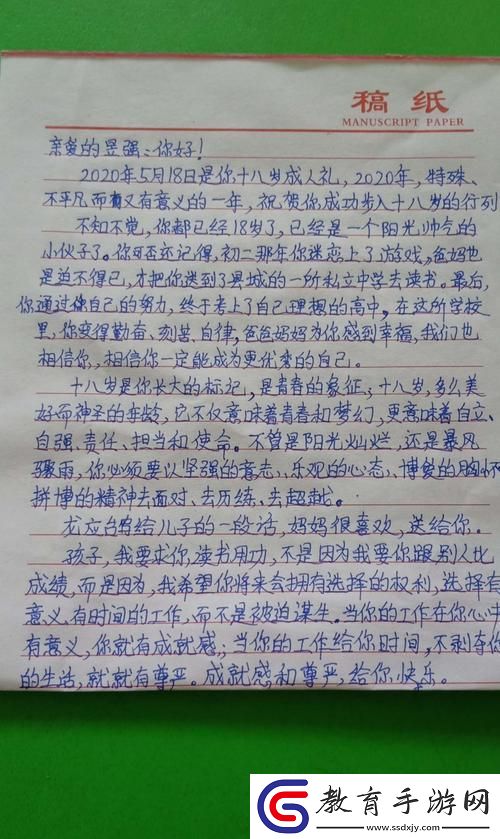 稿纸
MANUSCRIPT PAPER
亲爱的昱强：你好！
2020年5月18日是你十八岁成人礼，2020年，特殊、
不平凡而又有意义的一年，祝贺你成功步入十八岁的行列
不知不觉，你都已经18岁了，已经是一个阳光帅气的
小伙子了。你是否还记得，初二那年你迷恋上了游戏，爸妈也
是迫不得已，才把你送到了县城的一所私立中学去读书。最后，
你通过你自己的努力，终于考上了自己理想的高中，在这所学校
里，你变得勤奋、刻苦、自律，爸爸妈妈为你感到幸福，我们也
相信你，相信你一定能成为更优秀的自己。
十八岁是你长大的标记，是青春的象征，十八岁，多么美
好而神圣的年龄，它不仅意味着青春和梦幻，更意味着自立、
自强、责任、担当和使命。不管是阳光灿烂，还是暴风
骤雨，你必须要以坚强的意志、乐观的心态、博爱的胸怀
拼搏的精神去面对、去历练、去超越。
龙应台给儿子的一段话，妈妈很喜欢，送给你。
孩子，我要求你读书用功，不是因为我要你跟别人比
成绩，而是因为，我希望你将来会拥有选择的权利，选择有
意义、有时间的工作，而不是被迫谋生。当你的工作在你心中
有意义，你就有成就感，当你的工作给你时间，不剥夺你
的生活，就就有尊严。成就感和尊严，给你快乐。
教育手游网
www.ssdxjy.com